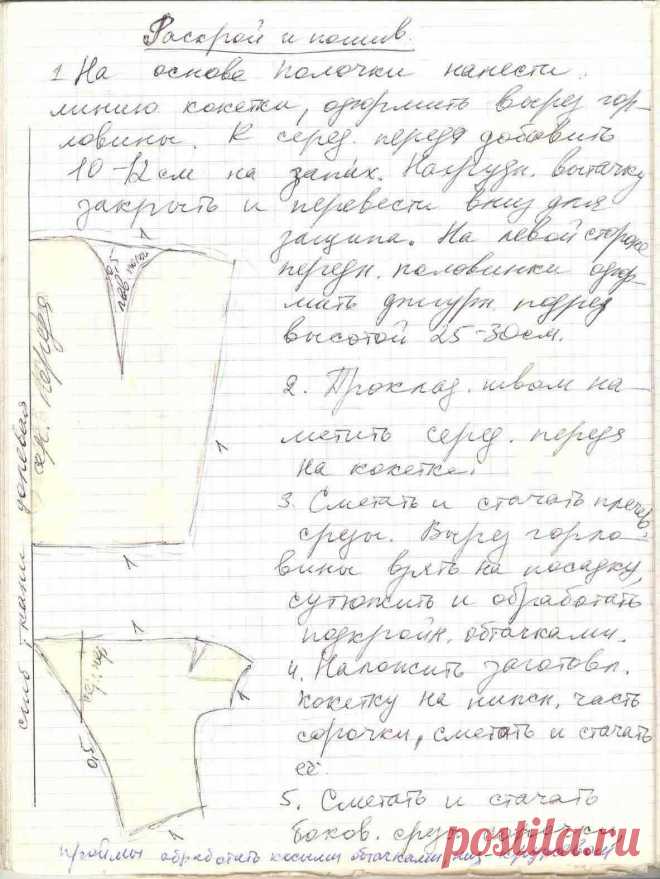 Раскрой и пошив.
1 На основе полочки нанести
линию кокетки, оформить вырез гор-
ловины. К серед. переда добавить
10-12 см на запах. Нагрудн. вытачку
закрыть и перевести вниз для
защипа. На левой стороне
передн. половинки офор-
мить фигурн. подрез
высотой 25-30 см.
2. Проклад. швом на-
метить серед. переда
на кокетке.
3. Сметать и стачать плечев.
срезы. Вырез горло-
вины взять на посадку,
сутюжить и обработать
подкройн. обтачками.
4. Наложить заготовл.
кокетку на нижн. часть
сорочки, сметать и стачать
её.
5. Сметать и стачать
боков. срезы
проймы обработать косыми обтачками, низ-
1
0,5
1
1
сер. переда
сгиб ткани долевая
1
0,5
1
1
postila.ru